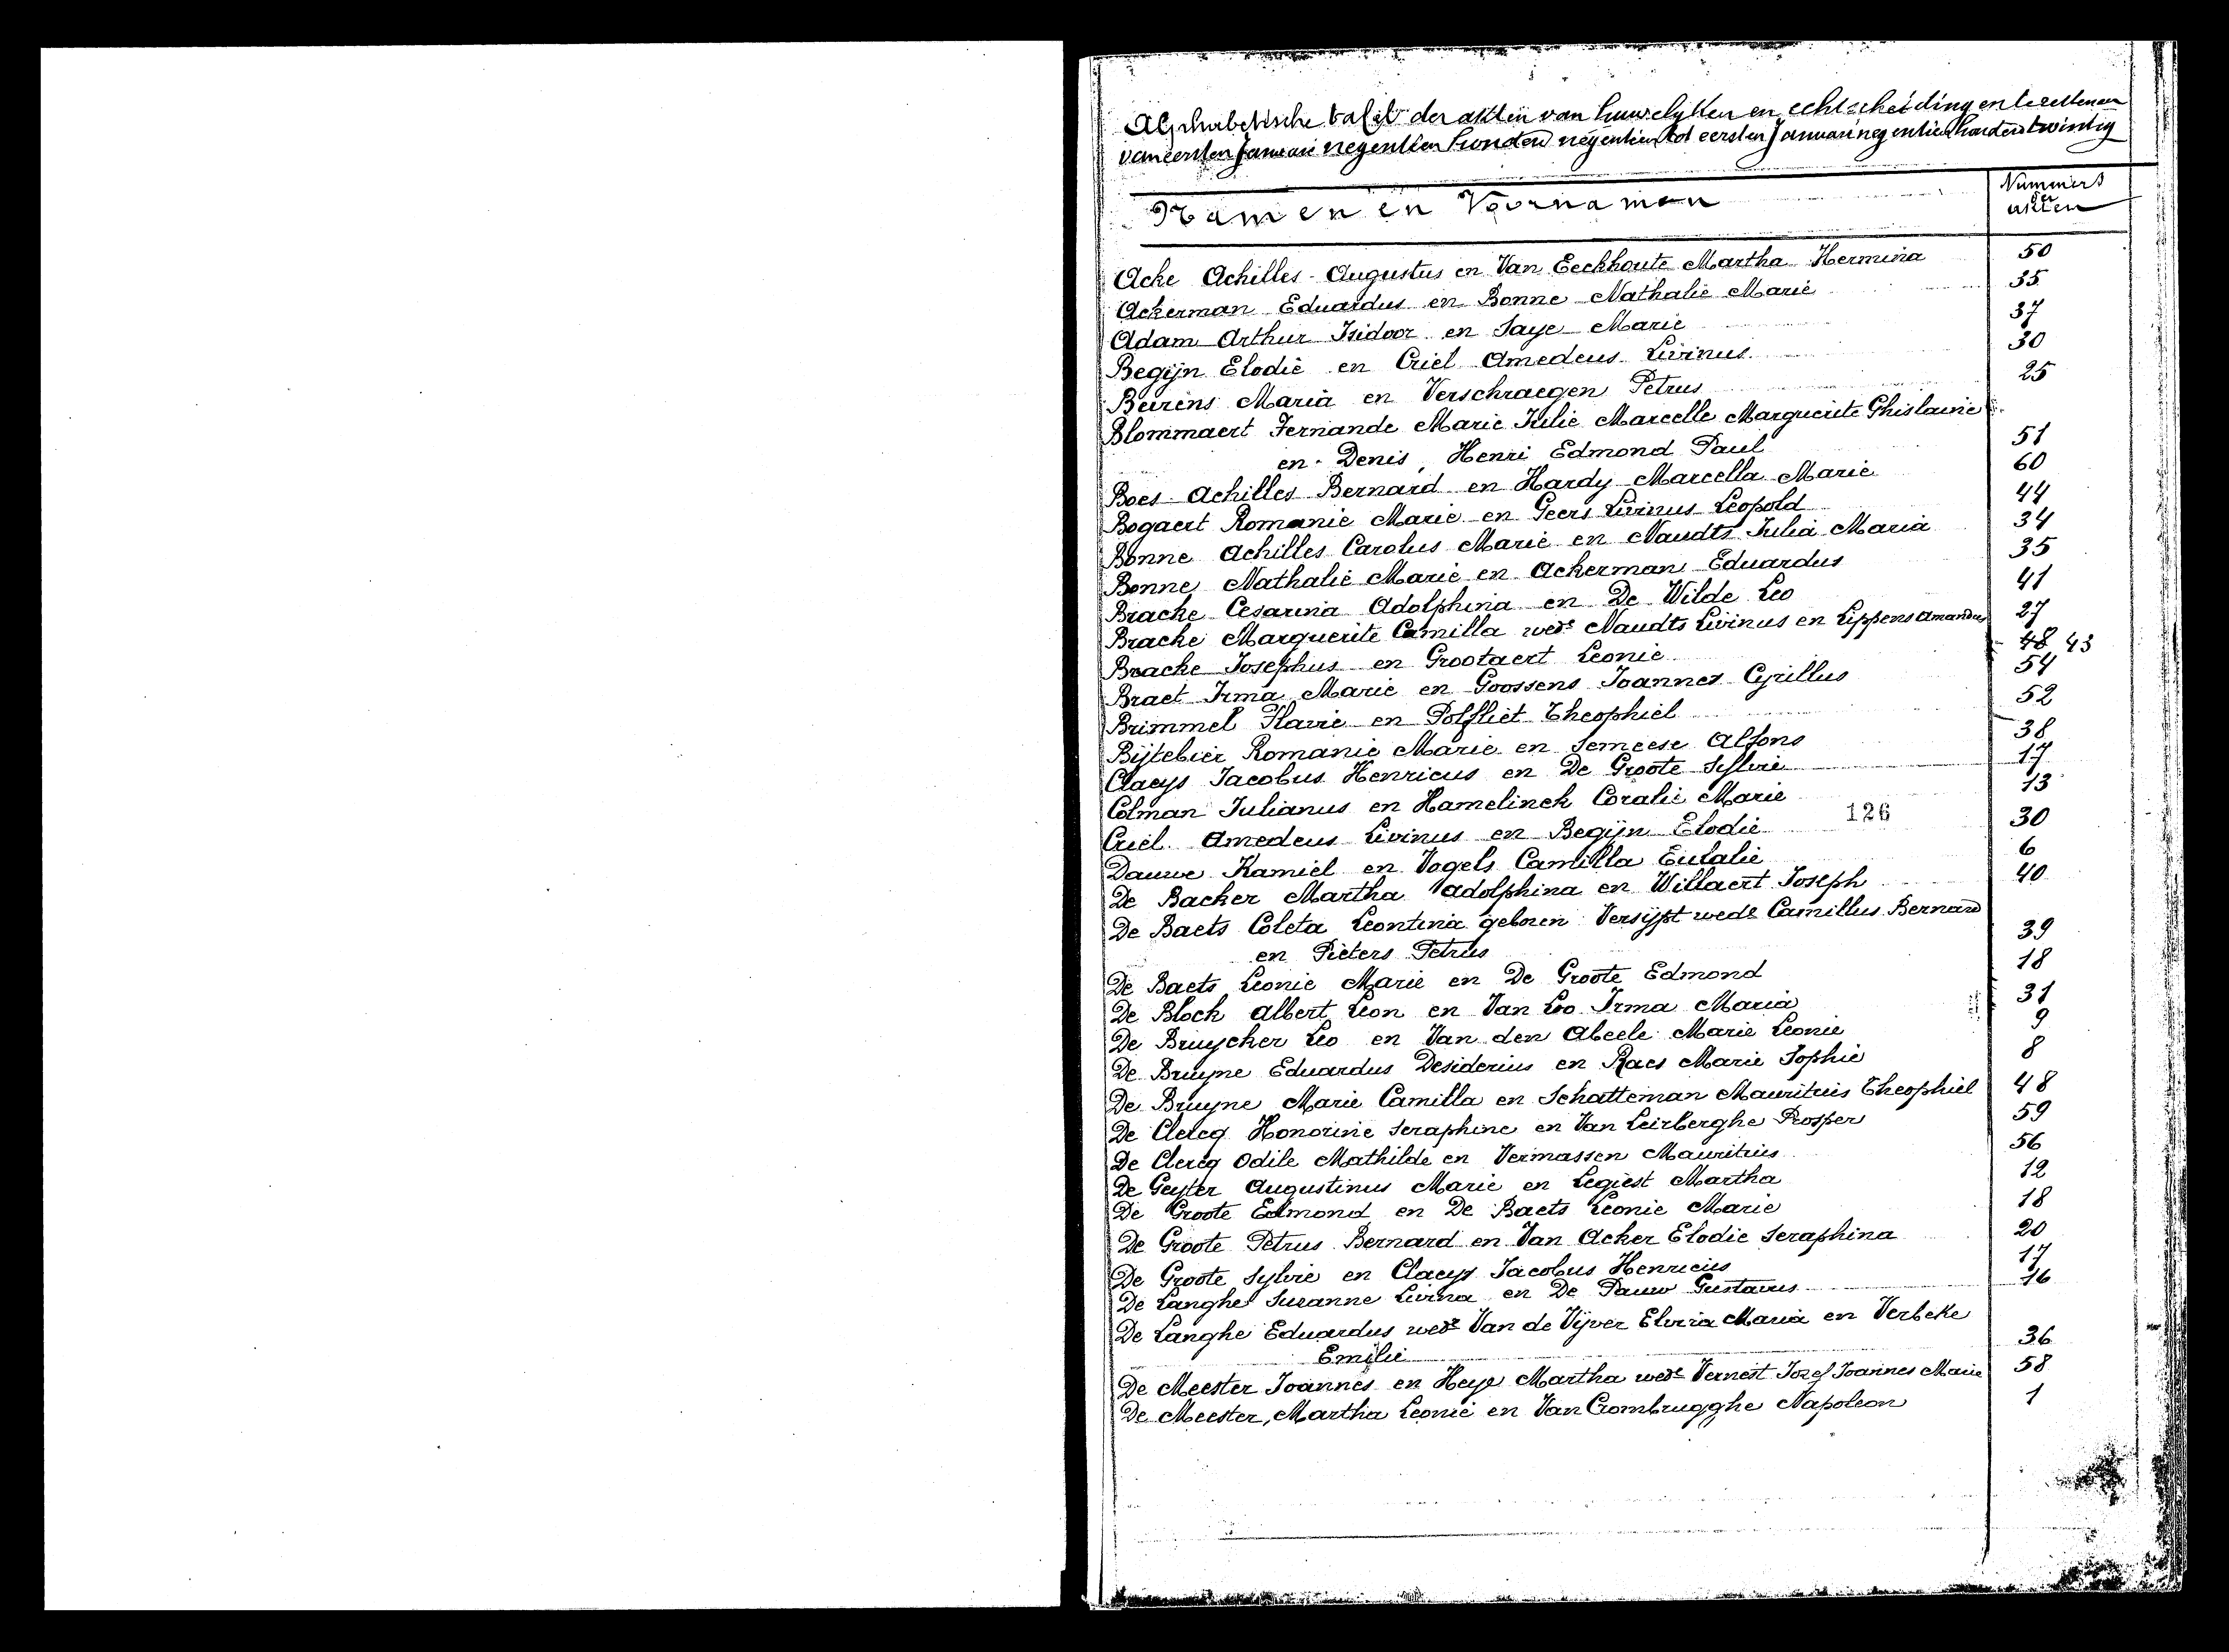 Alphabetische tafel der akten van huwelyken en echtscheiding en te Lettenen
van eersten Januari negentien honderd negentien tot eersten Januari negentien honderd twintig
Namen en Voornamen
Nummers
der
akten
Acke Achilles Augustus en Van Eeckhoute Martha Hermina 50
Ackerman Eduardus en Bonne Nathalie Marie 35
Adam Arthur Isidoor en Saye Marie 37
Begijn Elodie en Criel Amedeus Livinus 30
Beirens Maria en Verschraegen Petrus 25
Blommaert Fernande Marie Julie Marcelle Marguerite Ghislaine
en Denis, Henri Edmond Paul 51
Boes Achilles Bernard en Hardy Marcella Marie 60
Bogaert Romanie Marie en Geers Livinus Leopold 44
Bonne Achilles Carolus Marie en Naudts Julia Maria 34
Bonne Nathalie Marie en Ackerman Eduardus 35
Brache Cesarina Adolphina en De Wilde Leo 41
Brache Marguerite Camilla wede Naudts Livinus en Lippens Amandus 27
Brache Josephus en Grootaert Leonie 48 43
Braet Irma Marie en Goossens Joannes Cyrillus 54
Brimmel Flavie en Polfliet Theophiel 52
Bijtebier Romanie Marie en Semeese Alfons 38
Claeys Jacobus Henricus en De Groote Sylvie 17
Colman Julianus en Hamelinck Coralie Marie 13
126
Criel Amedeus Livinus en Begijn Elodie 30
Dauwe Kamiel en Vogels Camilla Eulalie 6
De Backer Martha Adolphina en Willaert Joseph 40
De Baets Coleta Leontina geboren Versijpt wede Camillus Bernard
en Pieters Petrus 39
De Baets Leonie Marie en De Groote Edmond 18
De Block Albert Leon en Van Loo Irma Maria 31
De Bruycker Leo en Van den Abeele Marie Leonie 9
De Bruyne Eduardus Desiderius en Raes Marie Sophie 8
De Bruyne Marie Camilla en Schatteman Mauritius Theophiel 48
De Clercq Honorine Seraphine en Van Leirberghe Prosper 59
De Clercq Odile Mathilde en Vermassen Mauritius 56
De Geyter Augustinus Marie en Legiest Martha 12
De Groote Edmond en De Baets Leonie Marie 18
De Groote Petrus Bernard en Van Acker Elodie Seraphina 20
De Groote Sylvie en Claeys Jacobus Henricus 17
De Langhe Suzanne Livina en De Pauw Gustavus 16
De Langhe Eduardus wedr Van de Vijver Elvira Maria en Verbeke
Emilie 36
De Meester Joannes en Heye Martha wede Vernest Jozef Joannes Marie 58
De Meester, Martha Leonie en Van Crombrugghe Napoleon 1